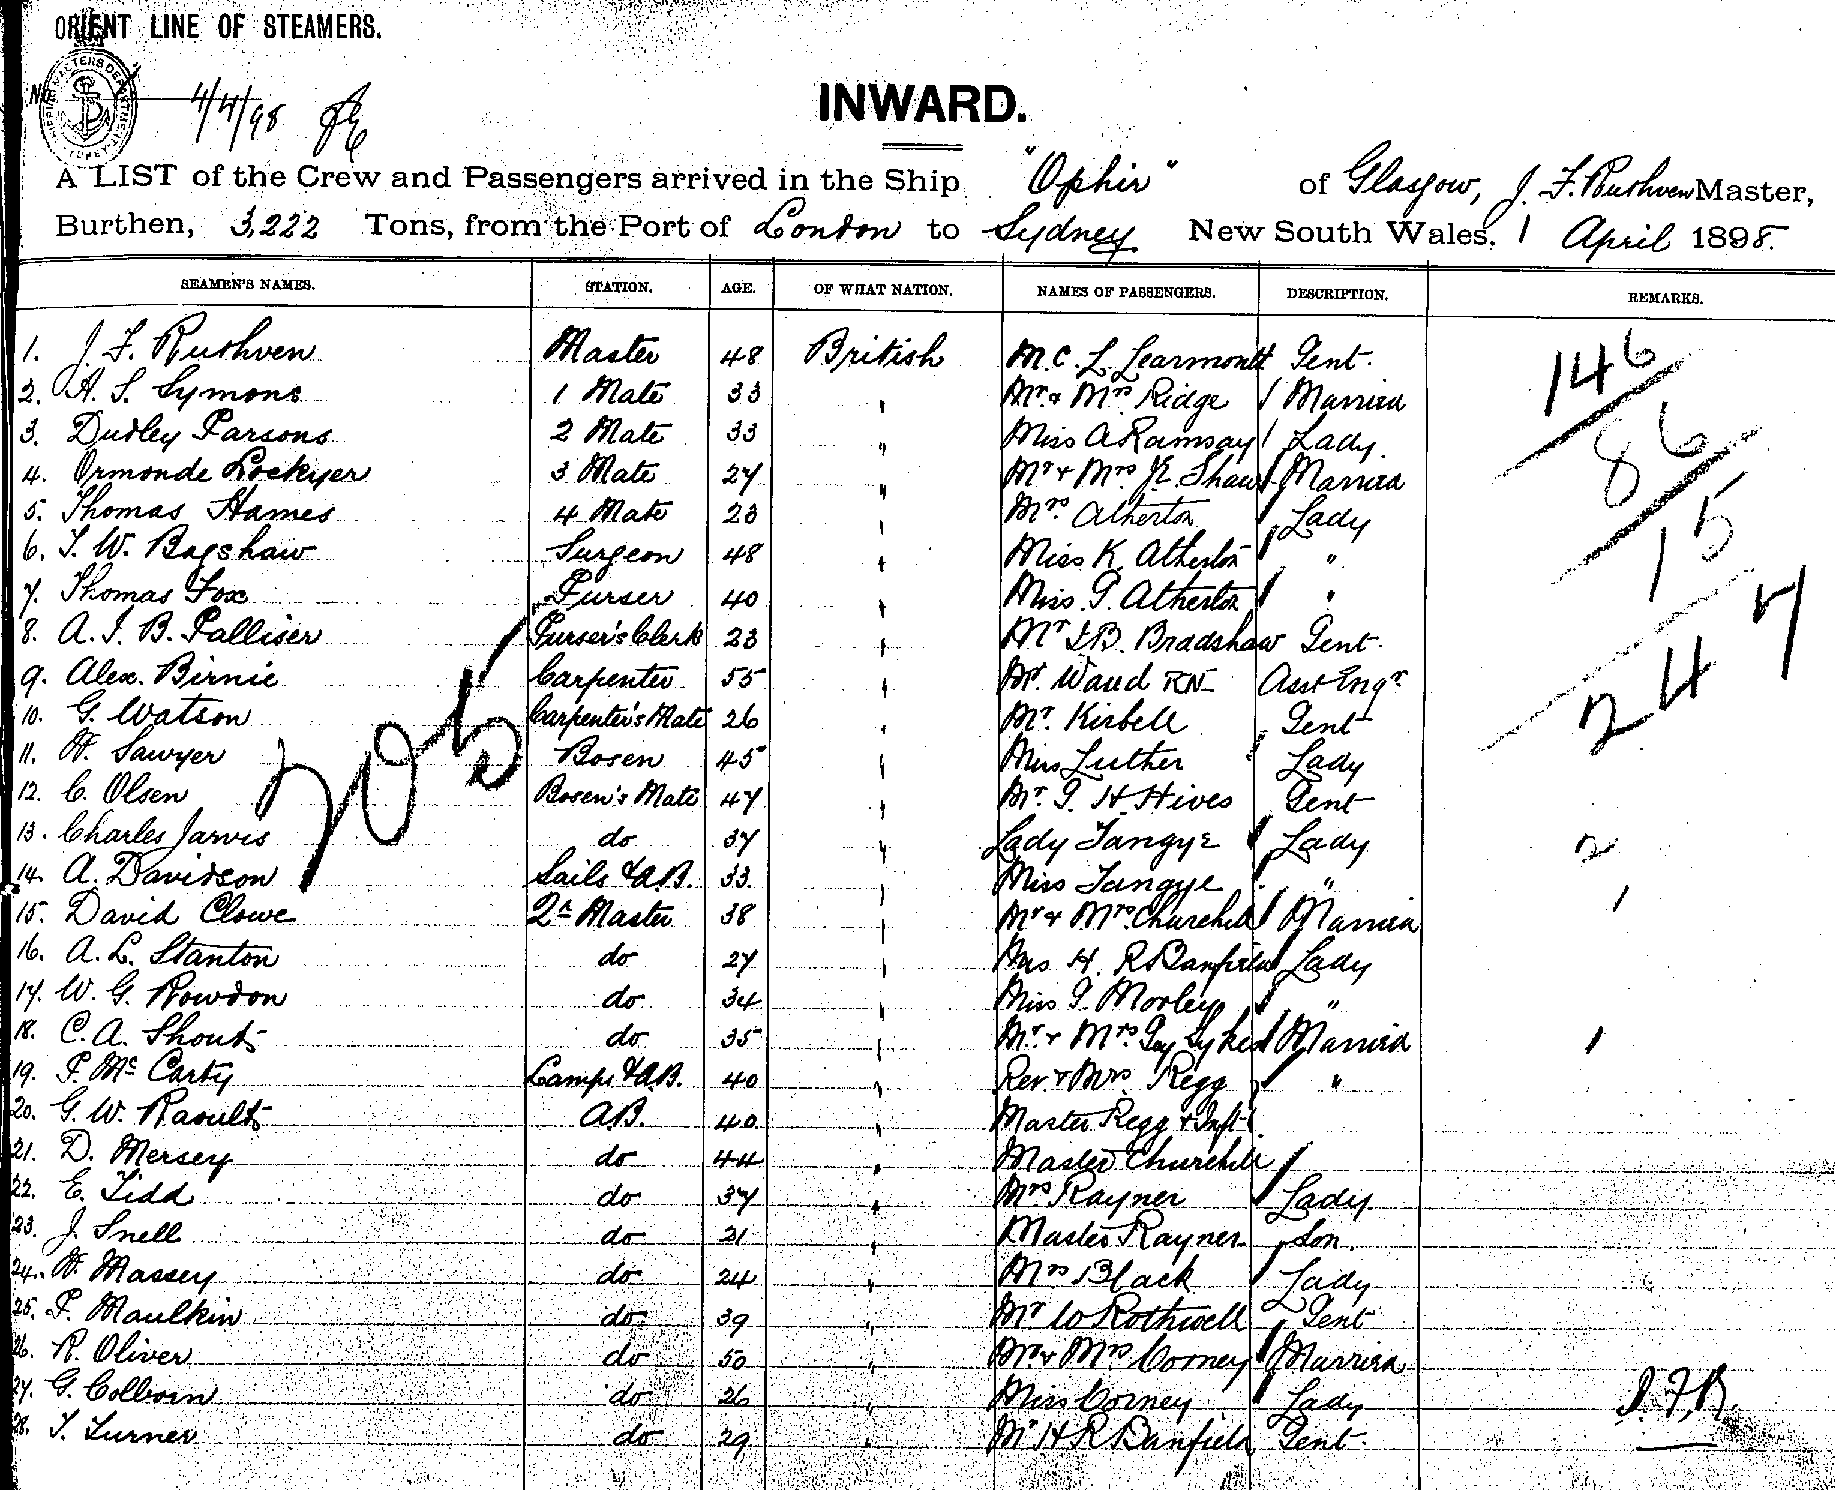 ORIENT LINE OF STEAMERS.
No
4/4/98
INWARD.
A LIST of the Crew and Passengers arrived in the Ship "Ophir" of Glasgow, J. F. Ruthven Master,
Burthen, 3,222 Tons, from the Port of London to Sydney New South Wales, 1 April 1898.
SEAMEN'S NAMES. STATION. AGE. OF WHAT NATION. NAMES OF PASSENGERS. DESCRIPTION. REMARKS.
1. J. F. Ruthven Master 48 British M.C. L. Learmonth Gent. 146
2. A. S. Symons 1 Mate 33 " Mr. & Mrs Ridge Married
3. Dudley Parsons 2 Mate 33 " Miss A Ramsay Lady. 86
4. Ormonde Lockyer 3 Mate 27 " Mr & Mrs. K. Shaw Married
5. Thomas Hames 4 Mate 23 " Mrs. Atherton Lady 15
6. T. W. Bagshaw Surgeon 48 " Miss K. Atherton "
7. Thomas Fox Purser 40 " Miss. G. Atherton "
8. A. J. B. Palliser Purser's Clerk 23 " Mr I.B. Bradshaw Gent. 247
9. Alex. Birnie Carpenter 55 " Mr. Waud RN Asst Engr
10. G. Watson Carpenter's Mate 26 " Mr. Kirbell Gent
205
11. W. Sawyer Bosen 45 " Miss Luther Lady
12. C. Olsen Bosen's Mate 47 " Mr. G. H. Hives Gent
13. Charles Jarvis do 37 " Lady Tangye Lady 2
14. A. Davidson Sails & A.B. 33 " Miss Tangye "
15. David Clowe Qr Master 38 " Mr & Mrs. Churchill Married 1
16. A. L. Stanton do 27 " Mrs H. R Banfield Lady
17. W. G. Rowdon do 34 " Miss G. Morley "
18. C. A. Shout do 35 " Mr. & Mrs Guy Sykes Married 1
19. P. Mc Carty Lamps & A.B. 40 " Rev. & Mrs Regg "
20. G. W. Raoult A.B. 40 " Master Regg & Inft
21. D. Mersey do 44 " Master Churchill
22. E. Tidd do 37 " Mrs Rayner Lady
23. J. Snell do 21 " Master Rayner Son.
24. W. Massey do 24 " Mrs Black Lady
25. P. Maulkin do 39 " Mr W Rothwell Gent
26. R. Oliver do 50 " Mr & Mrs Corney Married
27. G. Colborn do 26 " Miss Corney Lady J.F.R.
28. T. Turner do 29 " Mr H R Banfield Gent.